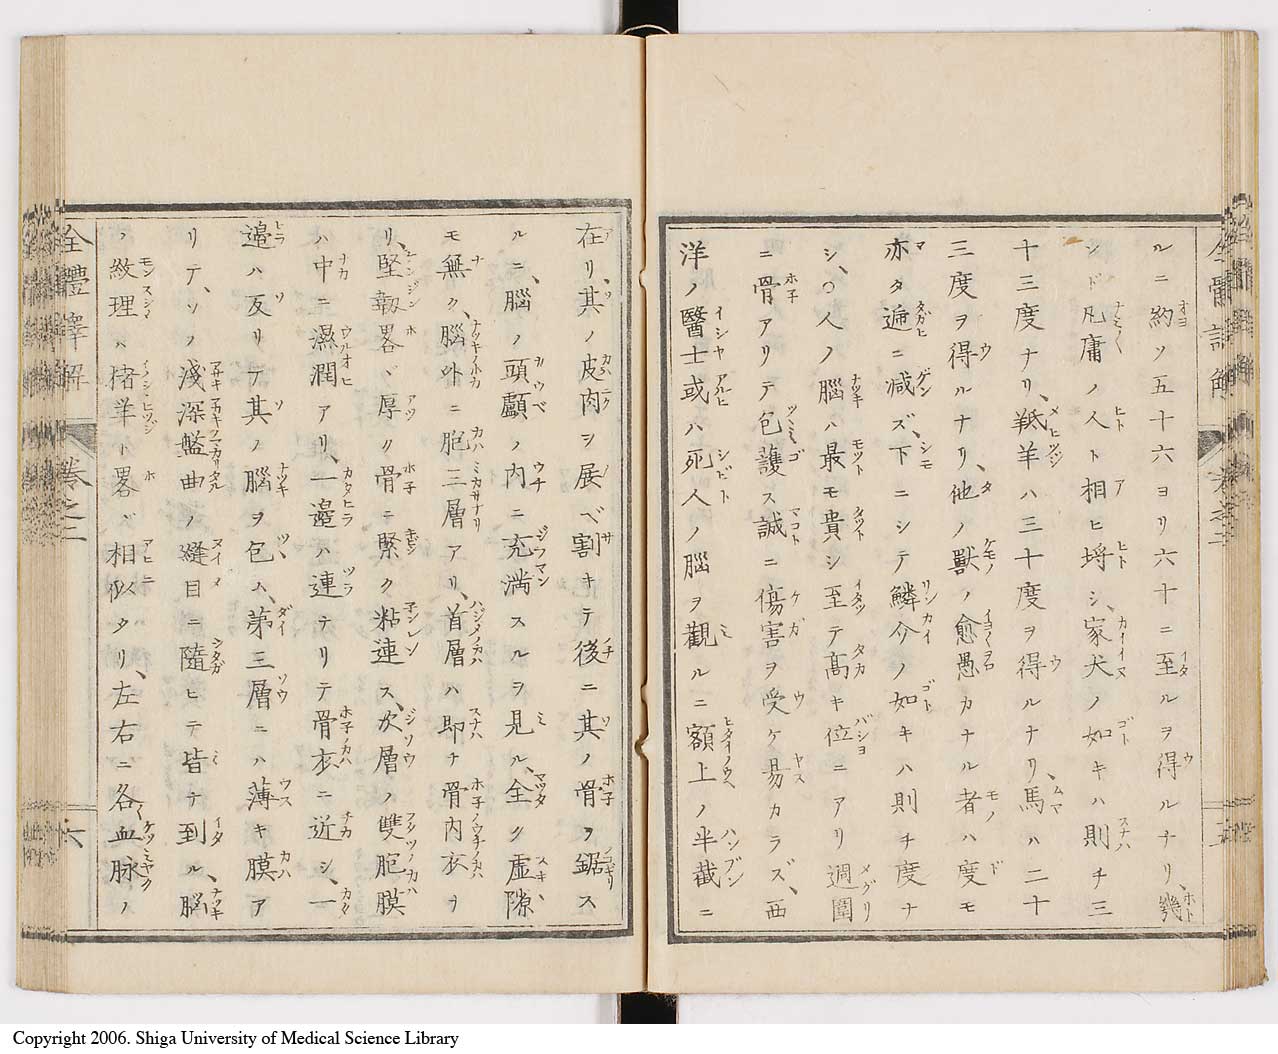 ルニ約ソ五十六ヨリ六十ニ至ルヲ得ルナリ、幾
シド凡庸ノ人ト相ヒ埒シ、家犬ノ如キハ則チ三
十三度ナリ、羝羊ハ三十度ヲ得ルナリ、馬ハ二十
三度ヲ得ルナリ、他ノ獣ノ愈愚カナル者ハ度モ
亦タ遞ニ減ズ、下ニシテ鱗介ノ如キハ則チ度ナ
シ、○人ノ腦ハ最モ貴シ至テ高キ位ニアリ週圍
ニ骨アリテ包護ス誠ニ傷害ヲ受ケ易カラズ、西
洋ノ醫士或ハ死人ノ腦ヲ觀ルニ額上ノ半截ニ
在リ、其ノ皮肉ヲ展ベ割キテ後ニ其ノ骨ヲ鋸ス
ルニ、腦ノ頭顱ノ内ニ充満スルヲ見ル、全ク虚隙
モ無ク、腦外ニ胞三層アリ、首層ハ即ナ骨内衣ヲ
リ、堅韌畧ゞ厚ク骨ニ緊ク粘連ス、次層ノ雙胞膜
ハ中ニ濕潤アリ、一邉ハ連テリテ骨衣ニ近シ、一
邉ハ反リテ其ノ腦ヲ包ム、苐三層ニハ薄キ膜ア
リテ、ソノ淺深盤曲ノ縫目ニ隨ヒテ皆ナ到ル、腦
ノ紋理ハ猪羊ト畧ゞ相似タリ、左右ニ各血脉ノ
全體譯解 卷之二 六
Copyright 2006. Shiga University of Medical Science Library